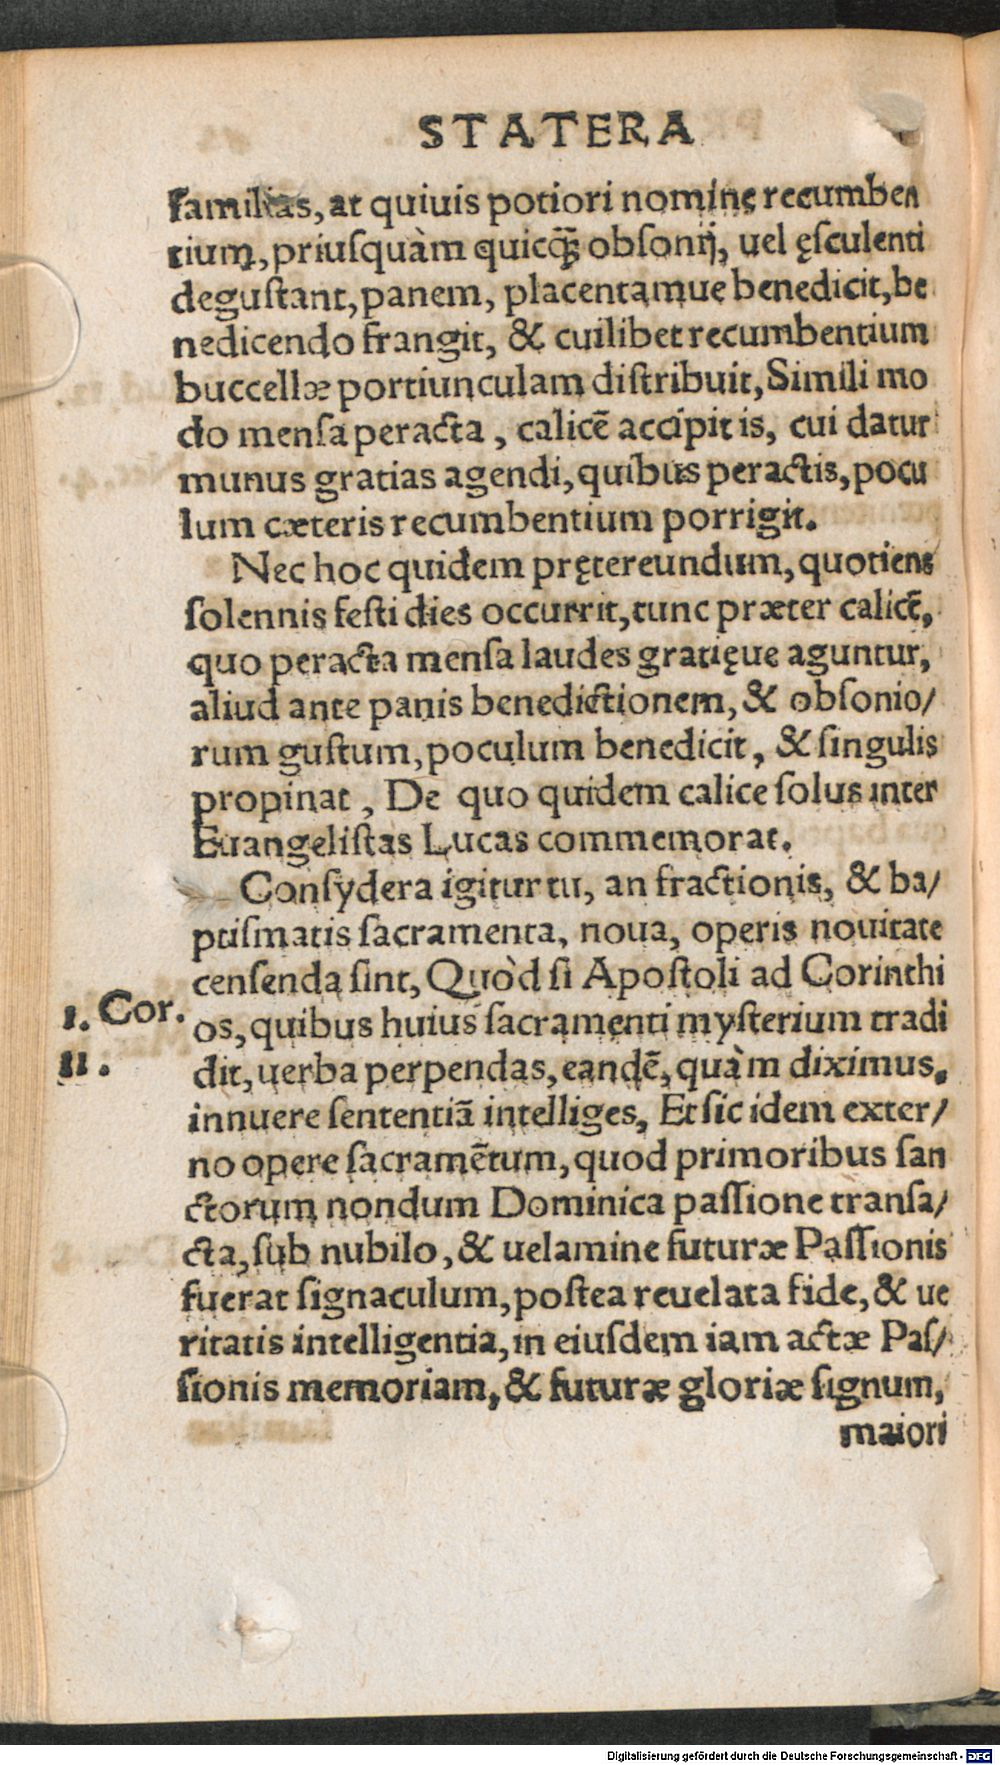 STATERA
familias, at quiuis potiori nomine recumben
tium, priusquàm quicq̃ꝫ obsonij, uel ęsculenti
degustant, panem, placentamue benedicit, be
nedicendo frangit, & cuilibet recumbentium
buccellæ portiunculam distribuit, Simili mo
do mensa peracta, calicẽ accipit is, cui datur
munus gratias agendi, quibus peractis, pocu
lum cæteris recumbentium porrigit.
Nec hoc quidem prętereundum, quotiens
solennis festi dies occurrit, tunc præter calicẽ,
quo peracta mensa laudes gratięue aguntur,
aliud ante panis benedictionem, & obsonio/
rum gustum, poculum benedicit, & singulis
propinat, De quo quidem calice solus inter
Euangelistas Lucas commemorat.
Consydera igitur tu, an fractionis, & ba/
ptismatis sacramenta, noua, operis nouitate
censenda sint, Quòd si Apostoli ad Corinthi
1. Cor.
11.
os, quibus huius sacramenti mysterium tradi
dit, uerba perpendas, eandẽ, quàm diximus,
innuere sententiã intelliges, Et sic idem exter/
no opere sacramẽtum, quod primoribus san
ctorum nondum Dominica passione transa/
cta, sub nubilo, & uelamine futuræ Passionis
fuerat signaculum, postea reuelata fide, & ue
ritatis intelligentia, in eiusdem iam actæ Pas/
sionis memoriam, & futuræ gloriæ signum,
maiori
Digitalisierung gefördert durch die Deutsche Forschungsgemeinschaft - DFG